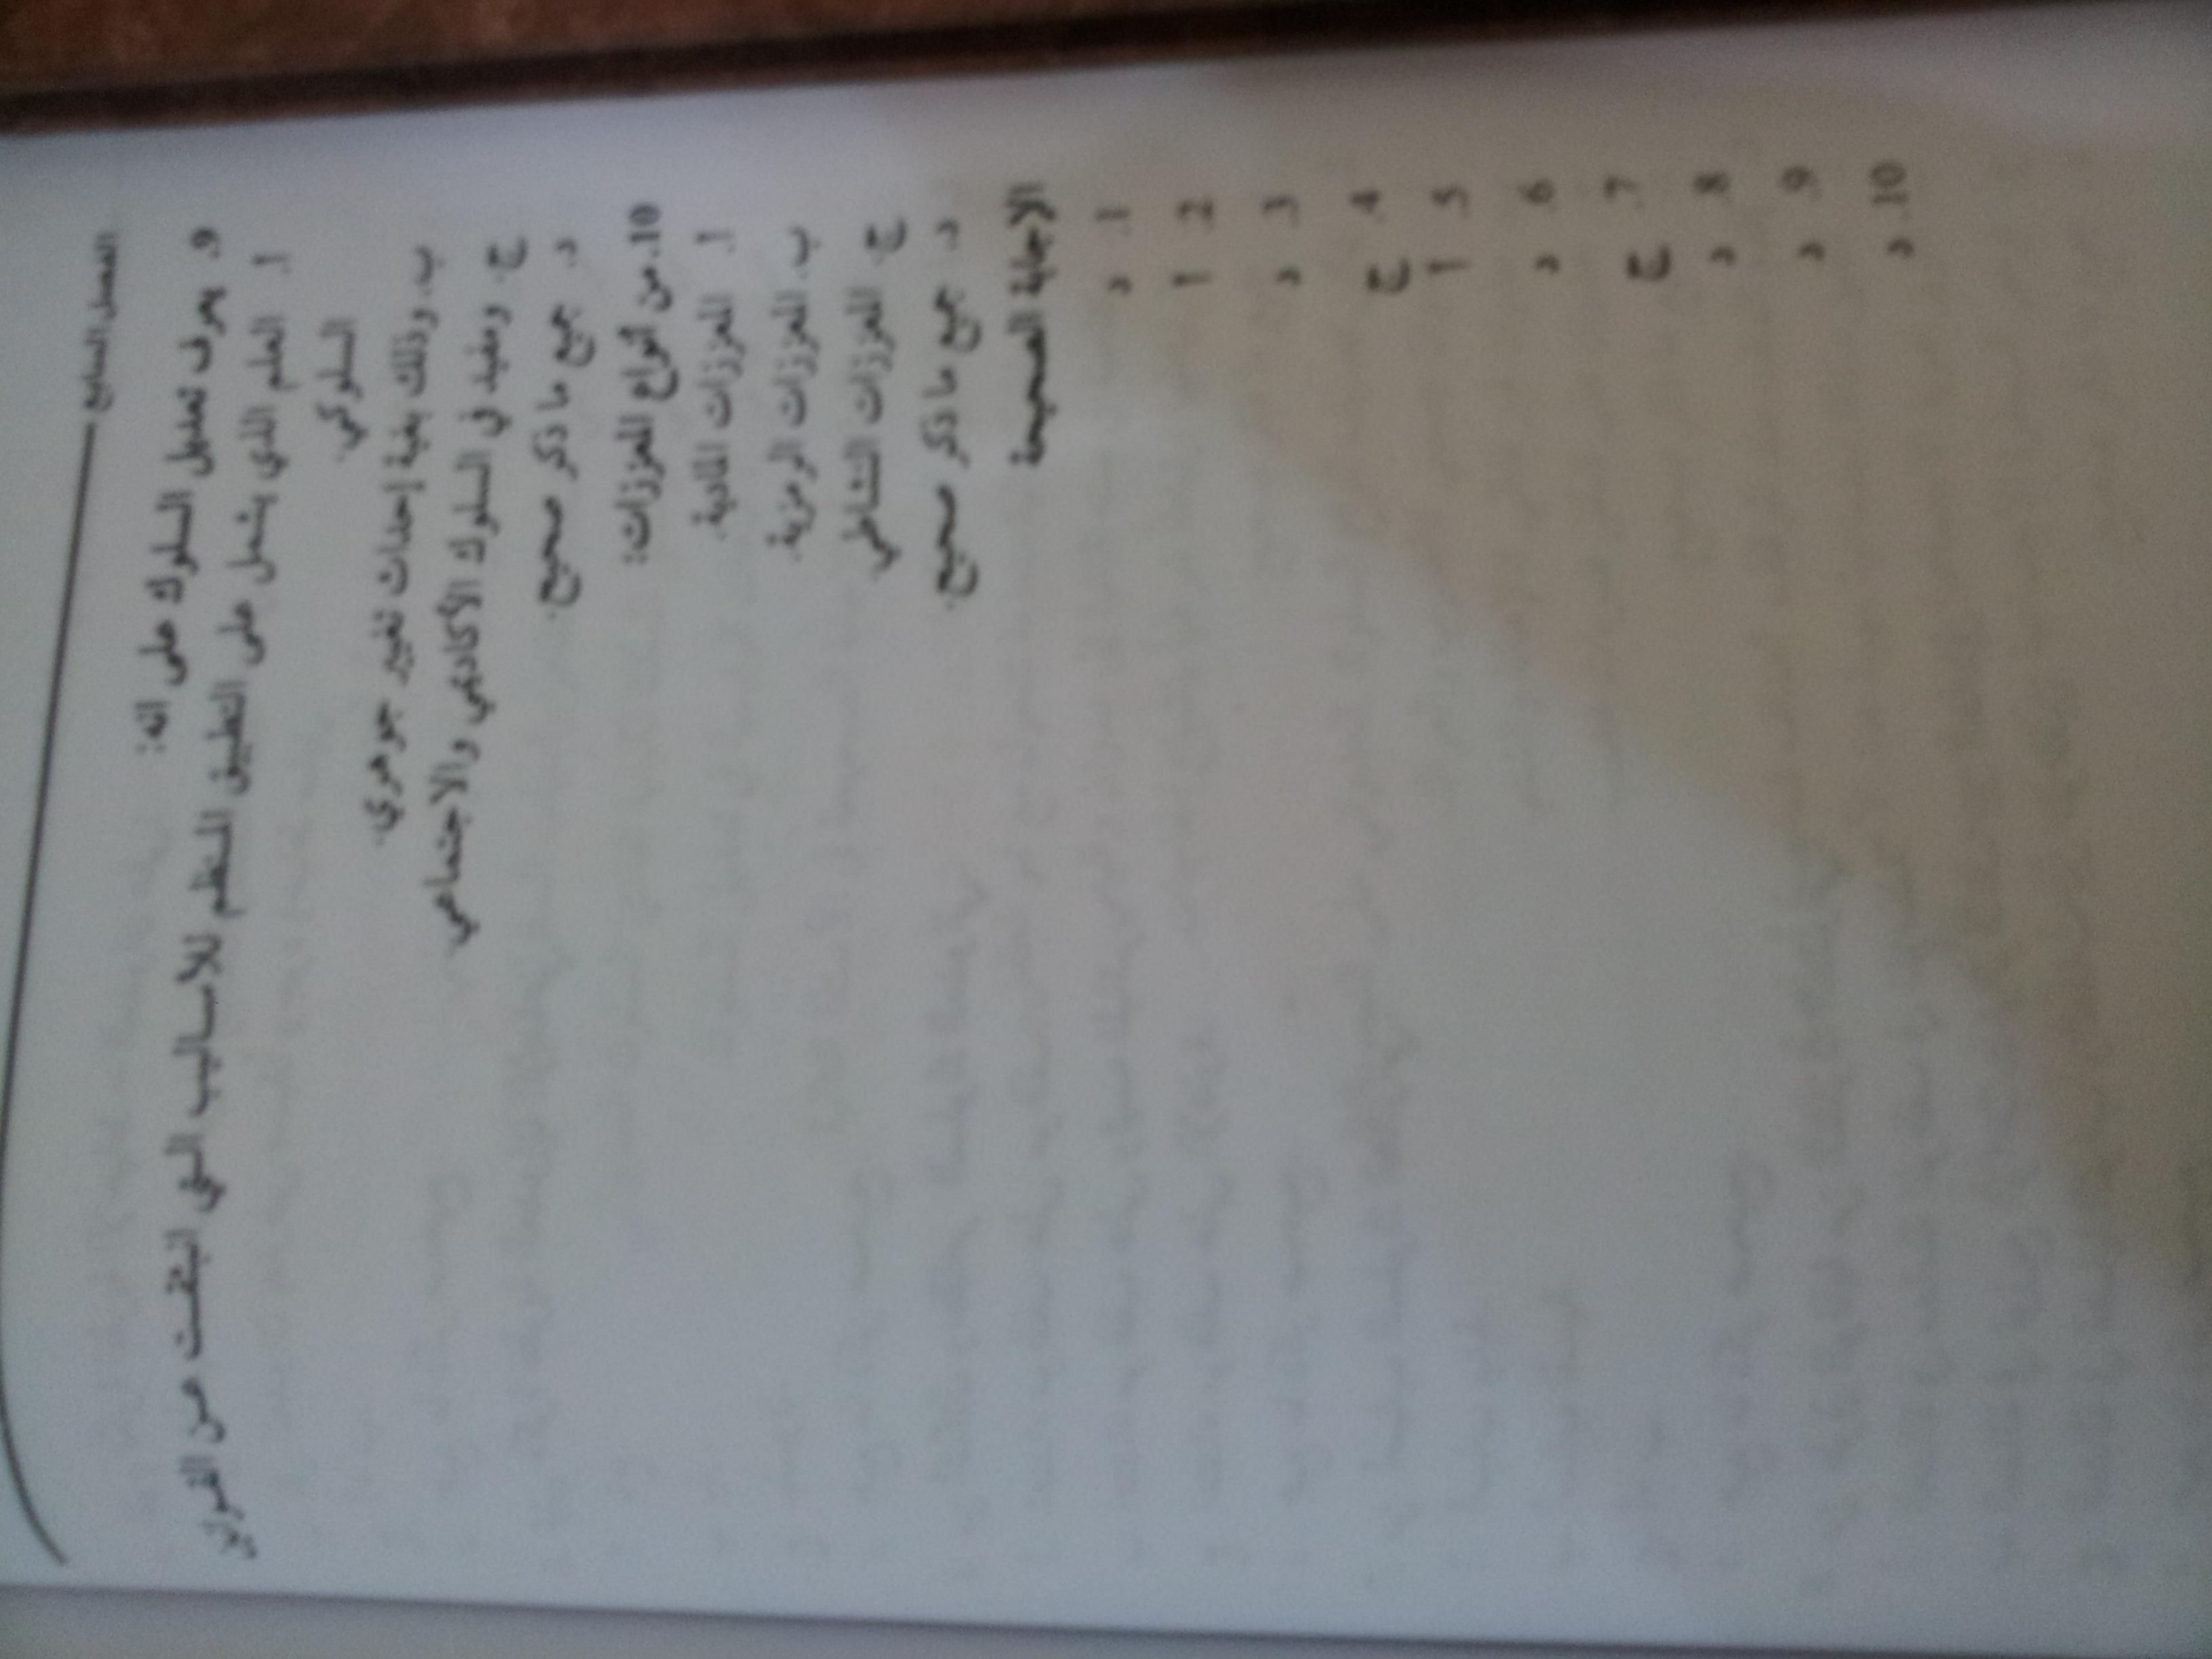 الفصل السابع
9. يعرف تعديل السلوك على انه:
أ. العلم الذي يشمل على التطبيق المنظم للأساليب التي انبثقت عن القوانين
السلوكي.
ب. وذلك بغية إحداث تغيير جوهري.
ج. ومفيد في السلوك الأكاديمي والاجتماعي.
د. جميع ما ذكر صحيح.
10. من أنواع المعززات:
أ. المعززات المادية.
ب. المعززات الرمزية.
ج. المعززات النشاطي.
د. جميع ما ذكر صحيح.
الاجابة الصحيحة
1. د
2. أ
3. د
4. ج
5. أ
6. د
7. ج
8. د
9. د
10. د